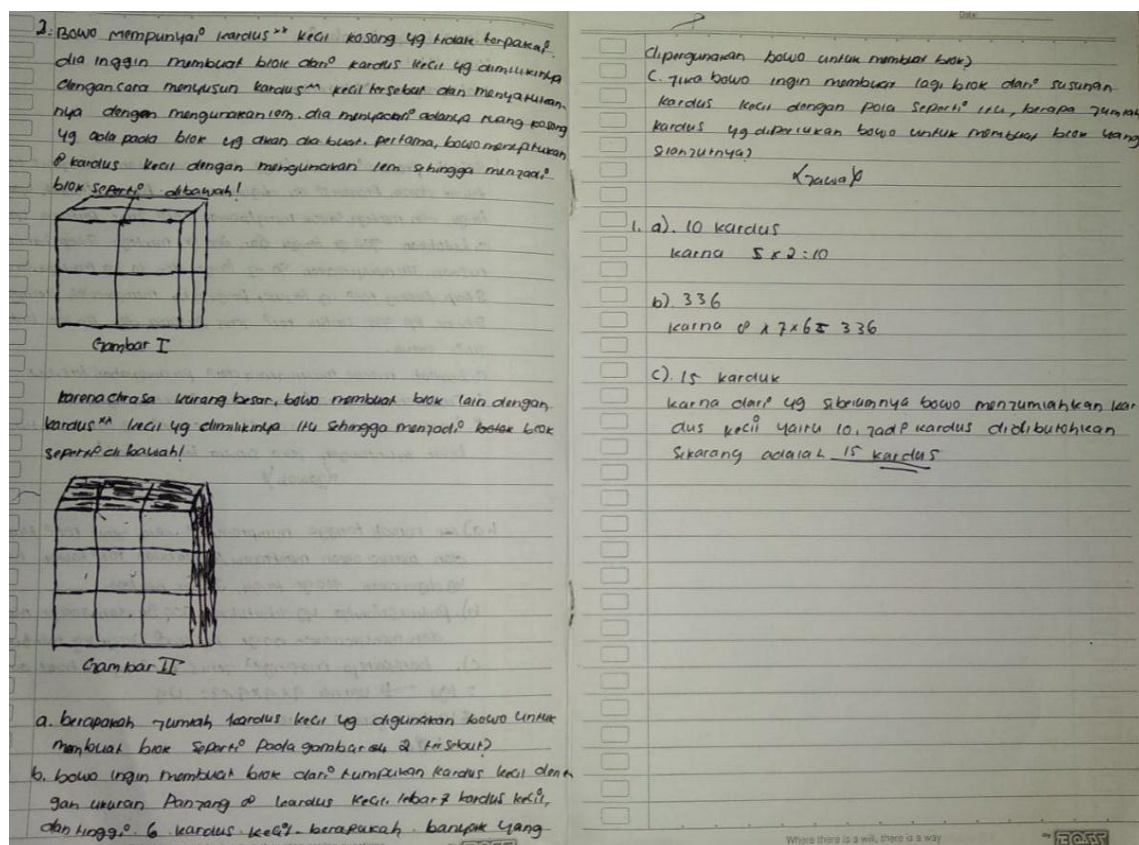 2. Bowo mempunyai kardus" kecil kosong yg tidak terpakai.
dia inggin membuat blok dari kardus kecil yg dimilikinya
dengan cara menyusun kardus" kecil tersebut dan menyatukan
nya dengan mengunakan lem. dia menyadari adanya ruang kosong
yg ada pada blok yg akan dia buat. pertama, bowo menyatukan
8 kardus kecil dengan mengunakan lem sehingga menjadi
blok seperti dibawah!
Gambar I
karena dirasa kurang besar, bowo membuat blok lain dengan
kardus" kecil yg dimilikinya itu sehingga menjadi blok
seperti di bawah!
Gambar II
a. berapakah jumlah kardus kecil yg digunakan bowo untuk
membuat blok seperti pada gambar 2 tersebut?
b. bowo ingin membuat blok dari tumpukan kardus kecil den
gan ukuran Panjang 8 kardus kecil, lebar 7 kardus kecil,
dan tinggi 6 kardus kecil. berapakah banyak yang
Date:
dipergunakan bowo untuk membuat blok?
C. Jika bowo ingin membuat lagi blok dari susunan
kardus kecil dengan pola seperti itu, berapa jumlah
kardus yg diperlukan bowo untuk membuat blok yang
slanjutnya?
(Jawab)
1. a). 10 kardus
karna 5 x 2 : 10
b). 336
karna 8 x 7 x 6 = 336
c). 15 karduk
karna dari yg sbelumnya bowo menjumlahkan kar
dus kecil yaitu 10, jadi kardus didibutohkan
sekarang adalah 15 kardus
Where there is a will, there is a way